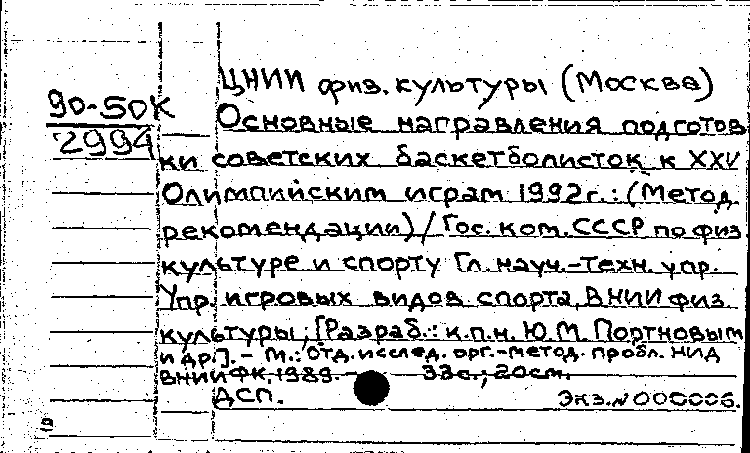 ЦНИИ физ. культуры (Москва)
90-50К
2994
Основные направления подготов
ки советских баскетболисток к XXV
Олимпийским играм 1992г.: (Метод.
рекомендации) / Гос. ком. СССР по физ
культуре и спорту Гл. науч.-техн. упр.
Упр. игровых видов спорта, ВНИИ физ.
культуры; [Разраб.: к.п.н. Ю.М. Портновым
и др.]. - М.: Отд. исслед. орг.-метод. пробл. НИД
ВНИИФК, 1989. - 33с.; 20см.
ДСП.
Экз. N 000006.